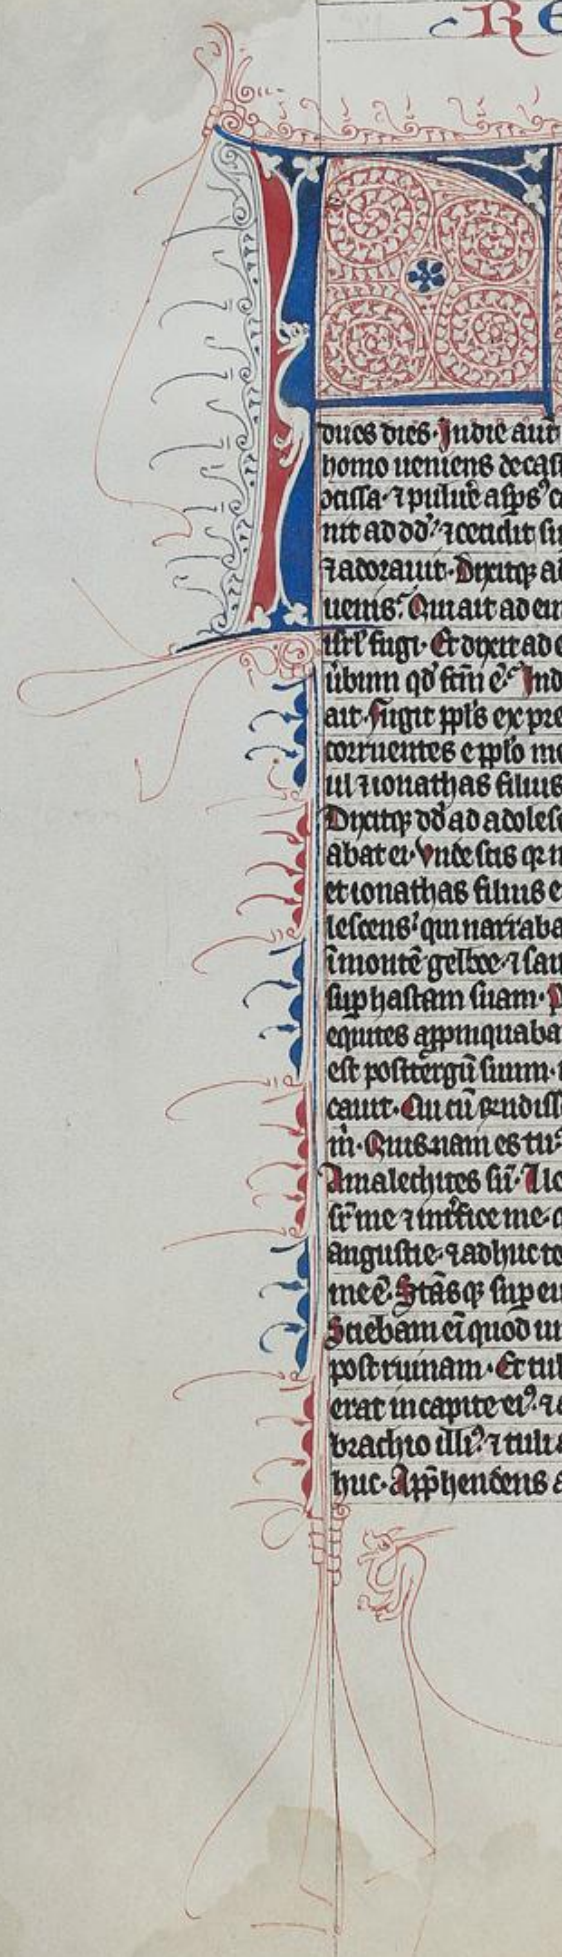 RE
duos dies. In die aut
homo ueniens de cast
⁊ puluē asps᷒ c
nit ad dd᷒. ⁊ cecidit su
⁊ adorauit. Dixitqꝫ ad
uenis. Qui ait ad eu
isrl̄ fugi. Et dixit ad e
ūbum qd̄ fc̄m ē. Ind
ait. Fugit ppl̄s ex pre
corruentes e pplo mo
ul ⁊ ionathas filius
Dixitqꝫ dd̄ ad adolesc
abat ei. Vnde scis qꝛ m
et ionathas filius e
lescens. qui narraba
ī monte gelboe. ⁊ sau
suꝑ hastam suam. P
equites apꝓinquaba
est post tergū suum. 
cauit. Cui cū rn̄diss
m̄. Quisnam es tu.
Amalechites sū. 
sr̄ me ⁊ int̓fice me. q
angustie. ⁊ adhuc to
mea ē. Stāsqꝫ suꝑ eu
Sciebam ei quod ui
post ruinam. Et tul
erat in capite ei᷒. ⁊ a
brachio illi᷒. ⁊ tuli a
huc. App̄hendens a